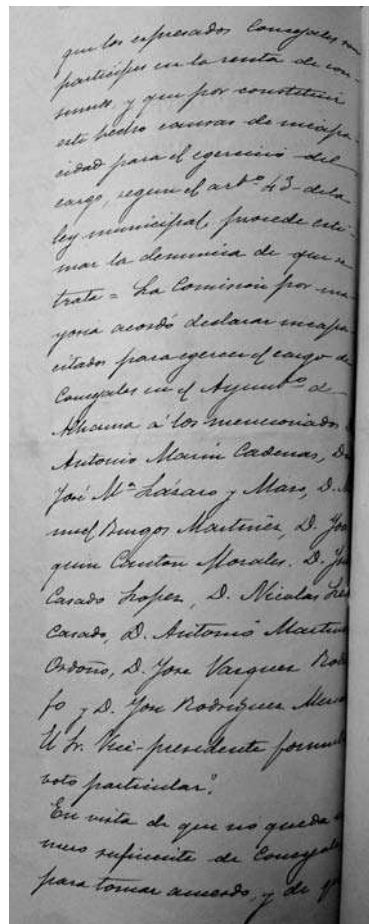 que los espresados Concejales son
participes en la renta de con-
sumos, y que por constituir
este hecho causas de incapa-
cidad para el egercicio del
cargo, segun el artº 43 de la
ley municipal, procede esti-
mar la denuncia de que se
trata = La Comision por ma-
yoria acordó declarar incapa-
citados para egercer el cargo de
Concejales en el Ayuntº de
Alhama á los mencionados
Antonio Marin Cadenas, D.
José Mª Lázaro y Maro, D.
nuel Burgos Martinez, D. Joa
quin Canton Morales. D. José
Casado Lopez, D. Nicolas
Casado, D. Antonio Martin
Ordoño, D. Jose Vazquez Rod
fo y D. Jose Rodriguez
El Sr. Vice-presidente formul
voto particular".
En vista de que no queda
mero suficiente de Concejale
para tomar acuerdo, y de